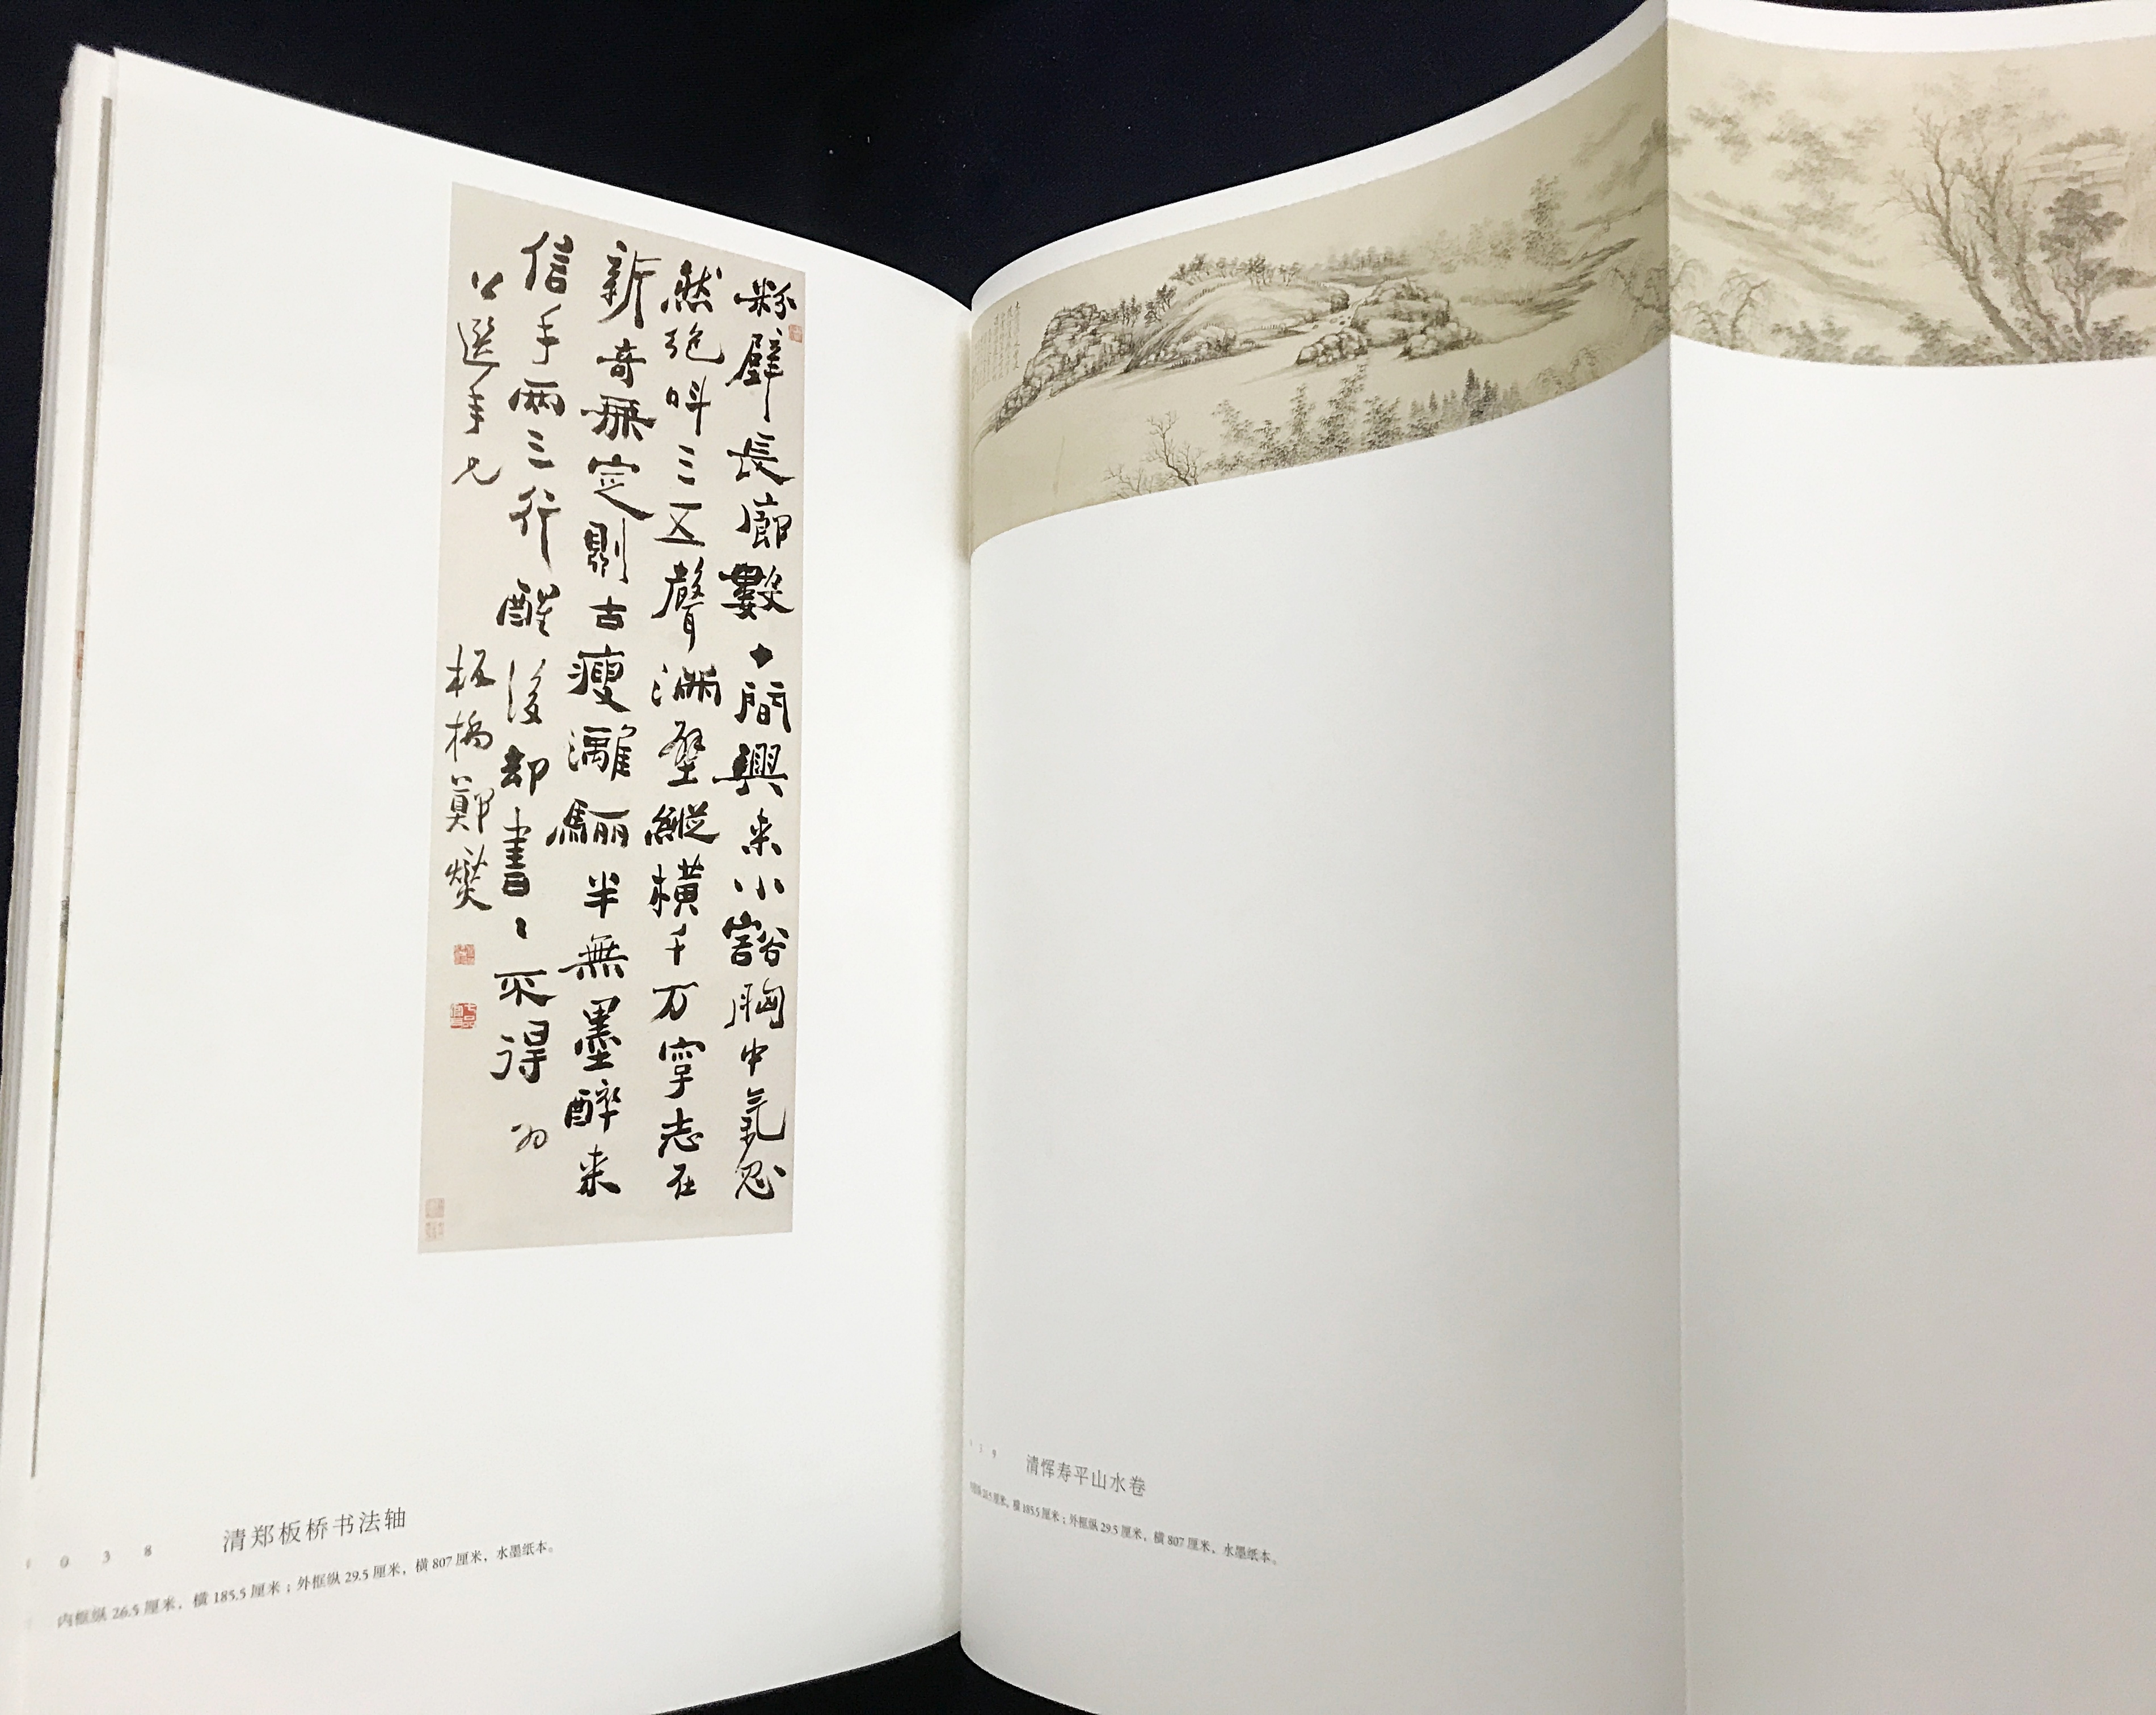 粉壁長廊數十間興来小豁胸中氣忽
然絶叫三五聲滿壁縱橫千万字志在
新奇無定則古瘦灕驪半無墨醉来
信手兩三行醒後却書〻不得 为
公選年兄
板橋鄭燮
0 3 8 清郑板桥书法轴
内框纵 26.5 厘米，横 185.5 厘米；外框纵 29.5 厘米，横 807 厘米，水墨纸本。
清恽寿平山水卷
横 185.5 厘米；外框纵 29.5 厘米，横 807 厘米，水墨纸本。